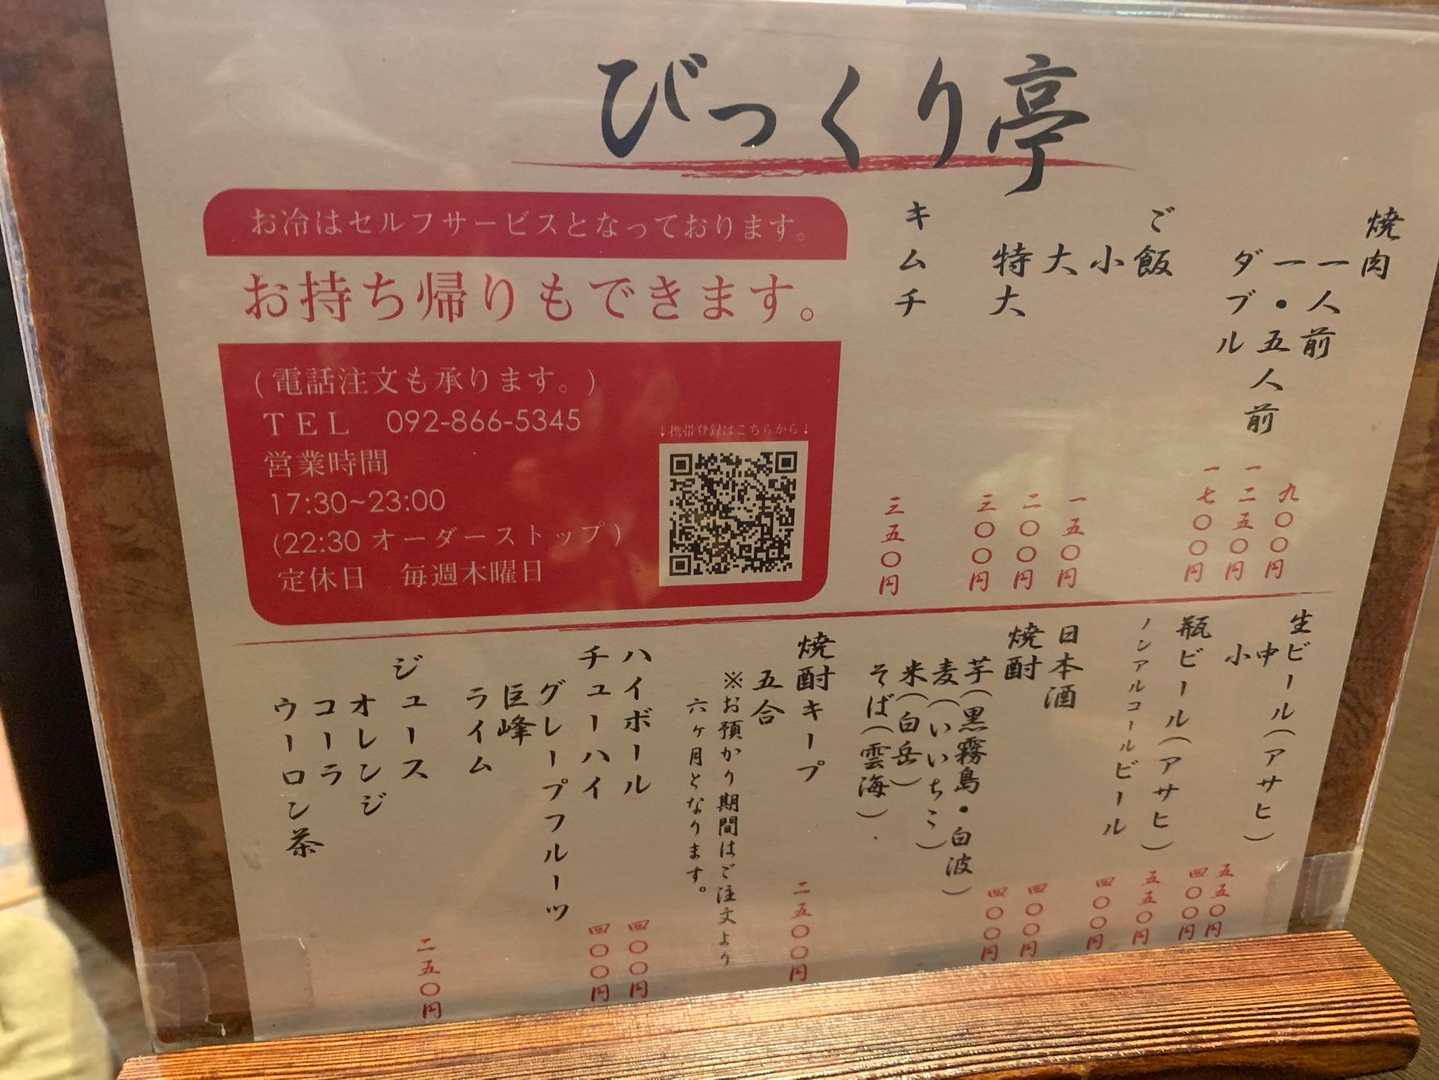 びっくり亭
お冷はセルフサービスとなっております。
お持ち帰りもできます。
(電話注文も承ります。)
TEL 092-866-5345
営業時間
17:30~23:00
(22:30 オーダーストップ)
定休日 毎週木曜日
↓携帯登録はこちらから↓
焼肉
一人前 九〇〇円
一・五人前 一二五〇円
ダブル 一七〇〇円
ご飯
小 一五〇円
大 二〇〇円
特大 三〇〇円
キムチ 三五〇円
生ビール(アサヒ)
中 五五〇円
小 四〇〇円
瓶ビール(アサヒ) 五五〇円
ノンアルコールビール 四〇〇円
日本酒 四〇〇円
焼酎 四〇〇円
芋(黒霧島・白波)
麦(いいちこ)
米(白岳)
そば(雲海)
焼酎キープ
五合 二五〇〇円
※お預かり期間はご注文より
六ヶ月となります。
ハイボール 四〇〇円
チューハイ 四〇〇円
グレープフルーツ
巨峰
ライム
ジュース 二五〇円
オレンジ
コーラ
ウーロン茶